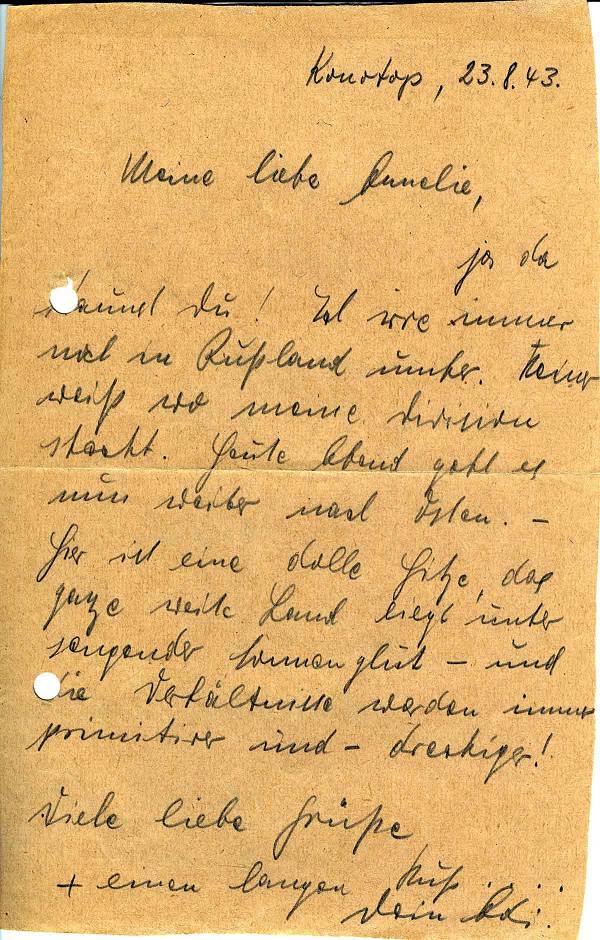 Konotop, 23.8.43.
Meine liebe Annelie,
ja da
staunst Du! Ich irre immer
noch in Rußland umher. Keiner
weiß wo meine Division
steckt. Heute Abend geht es
nun weiter nach Osten. –
Hier ist eine dolle Hitze, das
ganze weite Land liegt unter
sengender Sonnenglut – und
die Verhältnisse werden immer
primitiver und – dreckiger!
Viele liebe Grüße
+ einen langen Kuß . . . .
Dein Edi.